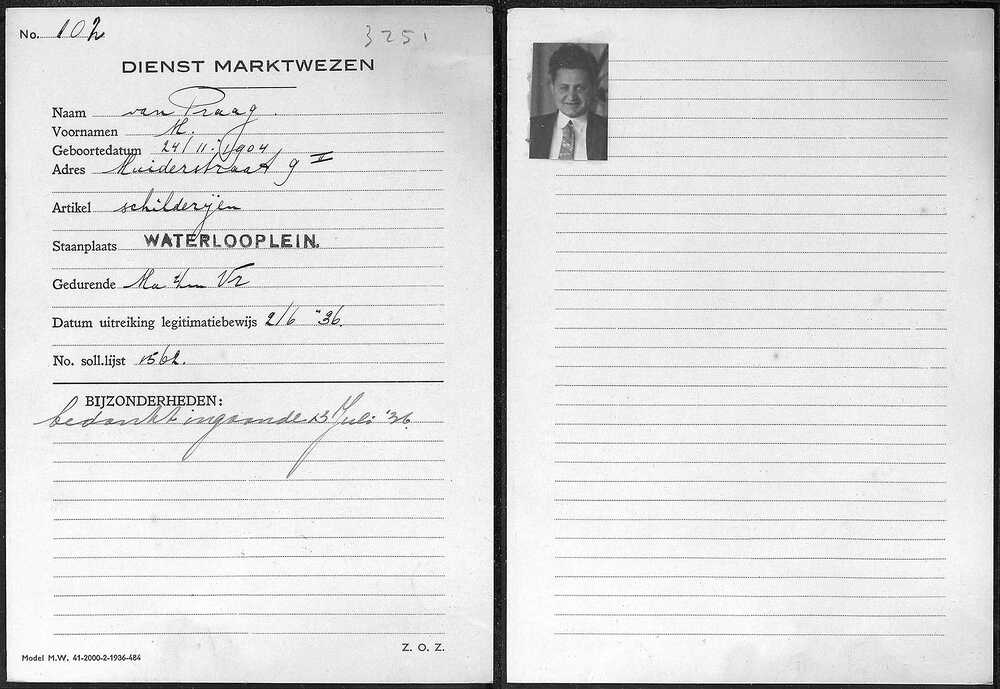 No. 102
3251
DIENST MARKTWEZEN
Naam van Praag.
Voornamen M.
Geboortedatum 24/11.'1904
Adres Muiderstraat 9 II
Artikel schilderijen
Staanplaats WATERLOOPLEIN.
Gedurende Ma t/m Vr
Datum uitreiking legitimatiebewijs 2/6 '36.
No. soll.lijst 1562.
BIJZONDERHEDEN:
bedankt ingaande 13 Juli '36.
Z. O. Z.
Model M.W. 41-2000-2-1936-484